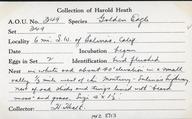 Collection of Harold Heath
A.O.U. No. 344 Species Golden Eagle
Set 344
Locality 6 mi. S.W. of Salinas, Calif
Date Incubation begun
Eggs in Set 2 Identification bird flushed
Nest in white oak about 40' elevation in a small
valley 1/2 mile west of the Monterey-Salinas highway
nest of oak sticks and twigs lined with beard
moss and grass. Size 4 x 1 1/2
Collector H Heath